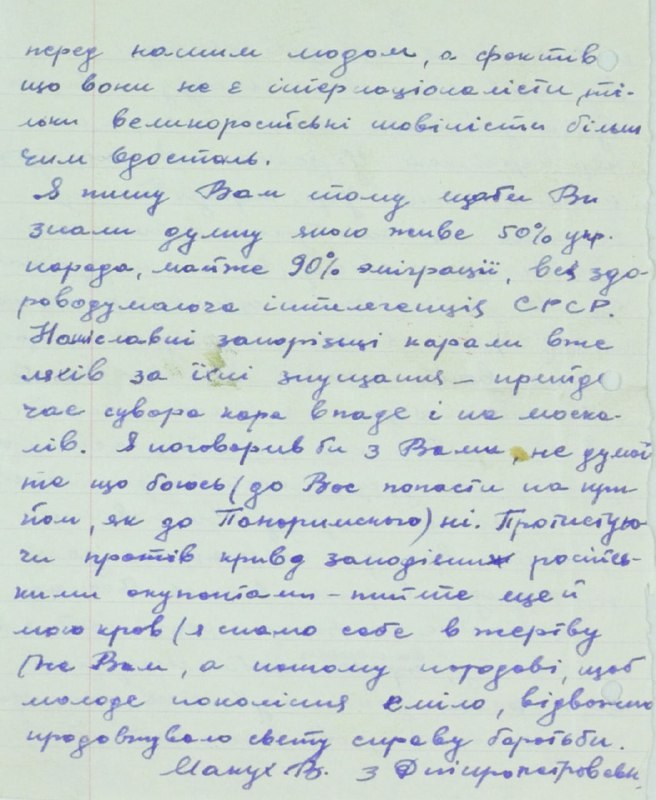 перед нашим людом, а фактів
що вони не є інтернаціоналісти, ті-
льки великоросійські шовіністи більш
чим вдосталь.
Я пишу Вам тому щоби Ви
знали думку якою живе 50% укр.
народа, майже 90% еміграції, вся здо-
роводумаюча інтелегенція СРСР.
Нашіславні запорізці карали вже
ляхів за їхні знущання – прийде
час сувора кара впаде і на моска-
лів. Я поговорив би з Вами, не думай
те що боюсь (до Вас попасти на при-
йом, як до Папоримського) ні. Протистую-
чи протів кривд заподіяних російсь-
кими окупантами – пийте ще й
мою кров (я стаю себе в жертву
(не Вам, а нашому народові, щоб
молоде покоління сміло, відважно
продовжувало святу справу боротьби.
Манух В. з Дніпропетровськ.